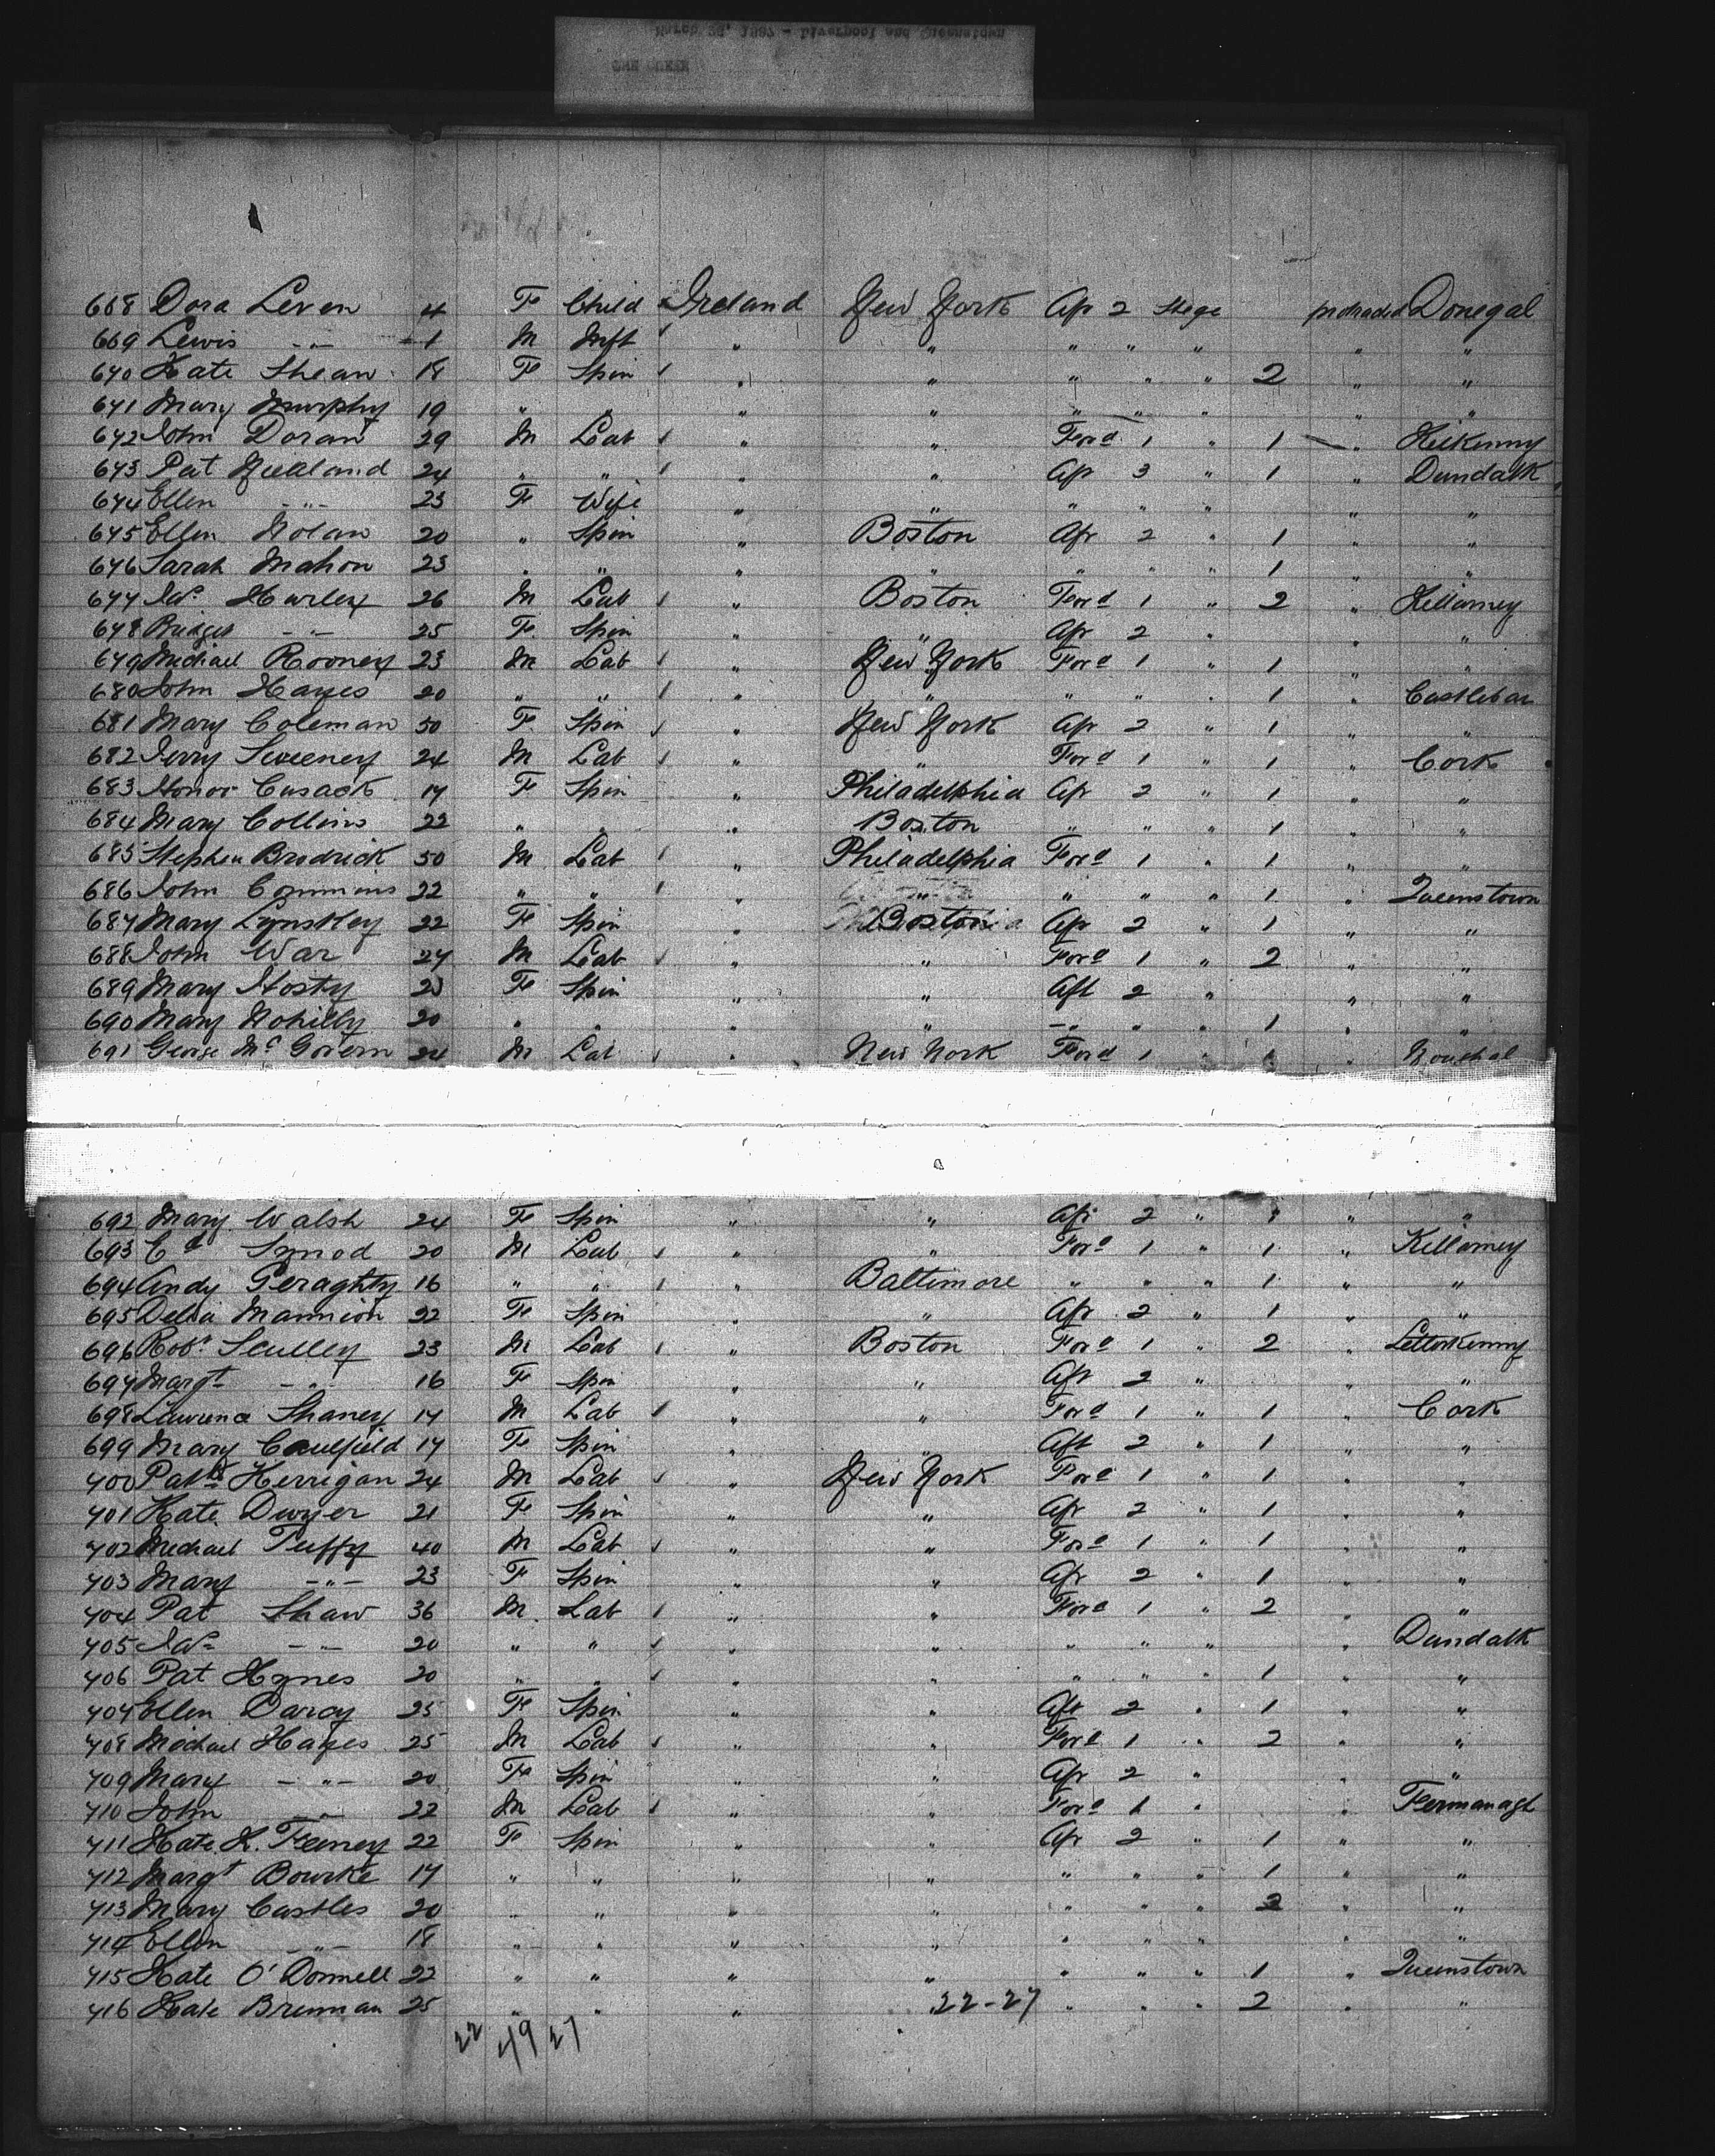 March 25, 1897 - Liverpool and Queenstown
668 Dora Leven 4 F Child Ireland New York Ap 2 Stge protracted Donegal
669 Lewis -"- 1 M Inft " " " " " " "
670 Kate Shean 18 F Spin " " " " " 2 " "
671 Mary Murphy 19 " " " " " " " " "
672 John Doran 29 M Lab " " Ford 1 " 1 " Kilkenny
673 Pat Neeland 24 " " " " Ap 3 " 1 " Dundalk
674 Ellen -"- 23 F Wife " " " " " " "
675 Ellen Nolan 20 " Spin " Boston Ap 2 " 1 " "
676 Sarah Mahon 23 " " " " " " " 1 " "
677 Wm Hurley 26 M Lab " Boston Ford 1 " 2 " Killarney
678 Bridget -"- 25 F Spin " " Ap 2 " " "
679 Michael Rooney 23 M Lab " New York Ford 1 " 1 " "
680 John Hayes 20 " " " " " " " 1 " Castlebar
681 Mary Coleman 50 F Spin " New York Ap 2 " 1 " "
682 Jerry Sweeney 24 M Lab " " Ford 1 " 1 " Cork
683 Honor Cusack 17 F Spin " Philadelphia Ap 2 " 1 " "
684 Mary Collins 22 " " " Boston " " " 1 " "
685 Stephen Brodrick 50 M Lab " Philadelphia Ford 1 " 1 " "
686 John Commins 22 " " " " " " " 1 " Queenstown
687 Mary Lynskey 22 F Spin " Boston Ap 2 " 1 " "
688 John War 27 M Lab " " Ford 1 " 2 " "
689 Mary Hosty 23 F Spin " " Aft 2 " " "
690 Mary Nohilly 20 " " " " " " " 1 " "
691 George McGovern 24 M Lab " New York Ford 1 " "
692 Mary Walsh 24 F Spin " " Ap 2 " 1 " "
693 Ed Synod 20 M Lab " " Ford 1 " 1 " Killarney
694 Andy Geraghty 16 " " " Baltimore " " " 1 " "
695 Delia Mannion 22 F Spin " " Ap 2 " 1 " "
696 Robt Sculley 23 M Lab " Boston Ford 1 " 2 " Letterkenny
697 Margt -"- 16 F Spin " " Aft 2 " " "
698 Lawrence Shaney 17 M Lab " " Ford 1 " 1 " Cork
699 Mary Caulfield 17 F Spin " " Aft 2 " 1 " "
700 Patk Kerrigan 24 M Lab " New York Ford 1 " 1 " "
701 Kate Dwyer 21 F Spin " " Ap 2 " 1 " "
702 Michael Tuffy 40 M Lab " " Ford 1 " 1 " "
703 Mary -"- 23 F Spin " " Ap 2 " 1 " "
704 Pat Shaw 36 M Lab " " Ford 1 " 2 " "
705 Wm -"- 20 " " " " " " " " Dundalk
706 Pat Hynes 20 " " " " " " " 1 " "
707 Ellen Darcy 25 F Spin " " Aft 2 " 1 " "
708 Michael Hayes 25 M Lab " " Ford 1 " 2 " "
709 Mary -"- 20 F Spin " " Ap 2 " " "
710 John -"- 22 M Lab " " Ford 1 " " Fermanagh
711 Kate K. Feeney 22 F Spin " " Ap 2 " 1 " "
712 Margt Bourke 17 " " " " " " " 1 " "
713 Mary Castles 20 " " " " " " " 2 " "
714 Ellen -"- 18 " " " " " " " " "
715 Kate O'Donnell 22 " " " " " " " 1 " Queenstown
716 Kate Brennan 25 " " " 22-27 " " " 2 " "
22 49 27